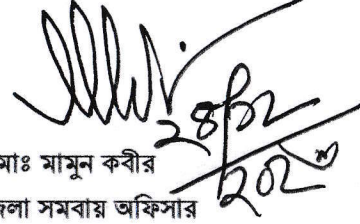 ২৪/১২
২০২
মাঃ মামুন কবীর
জলা সমবায় অফিসার